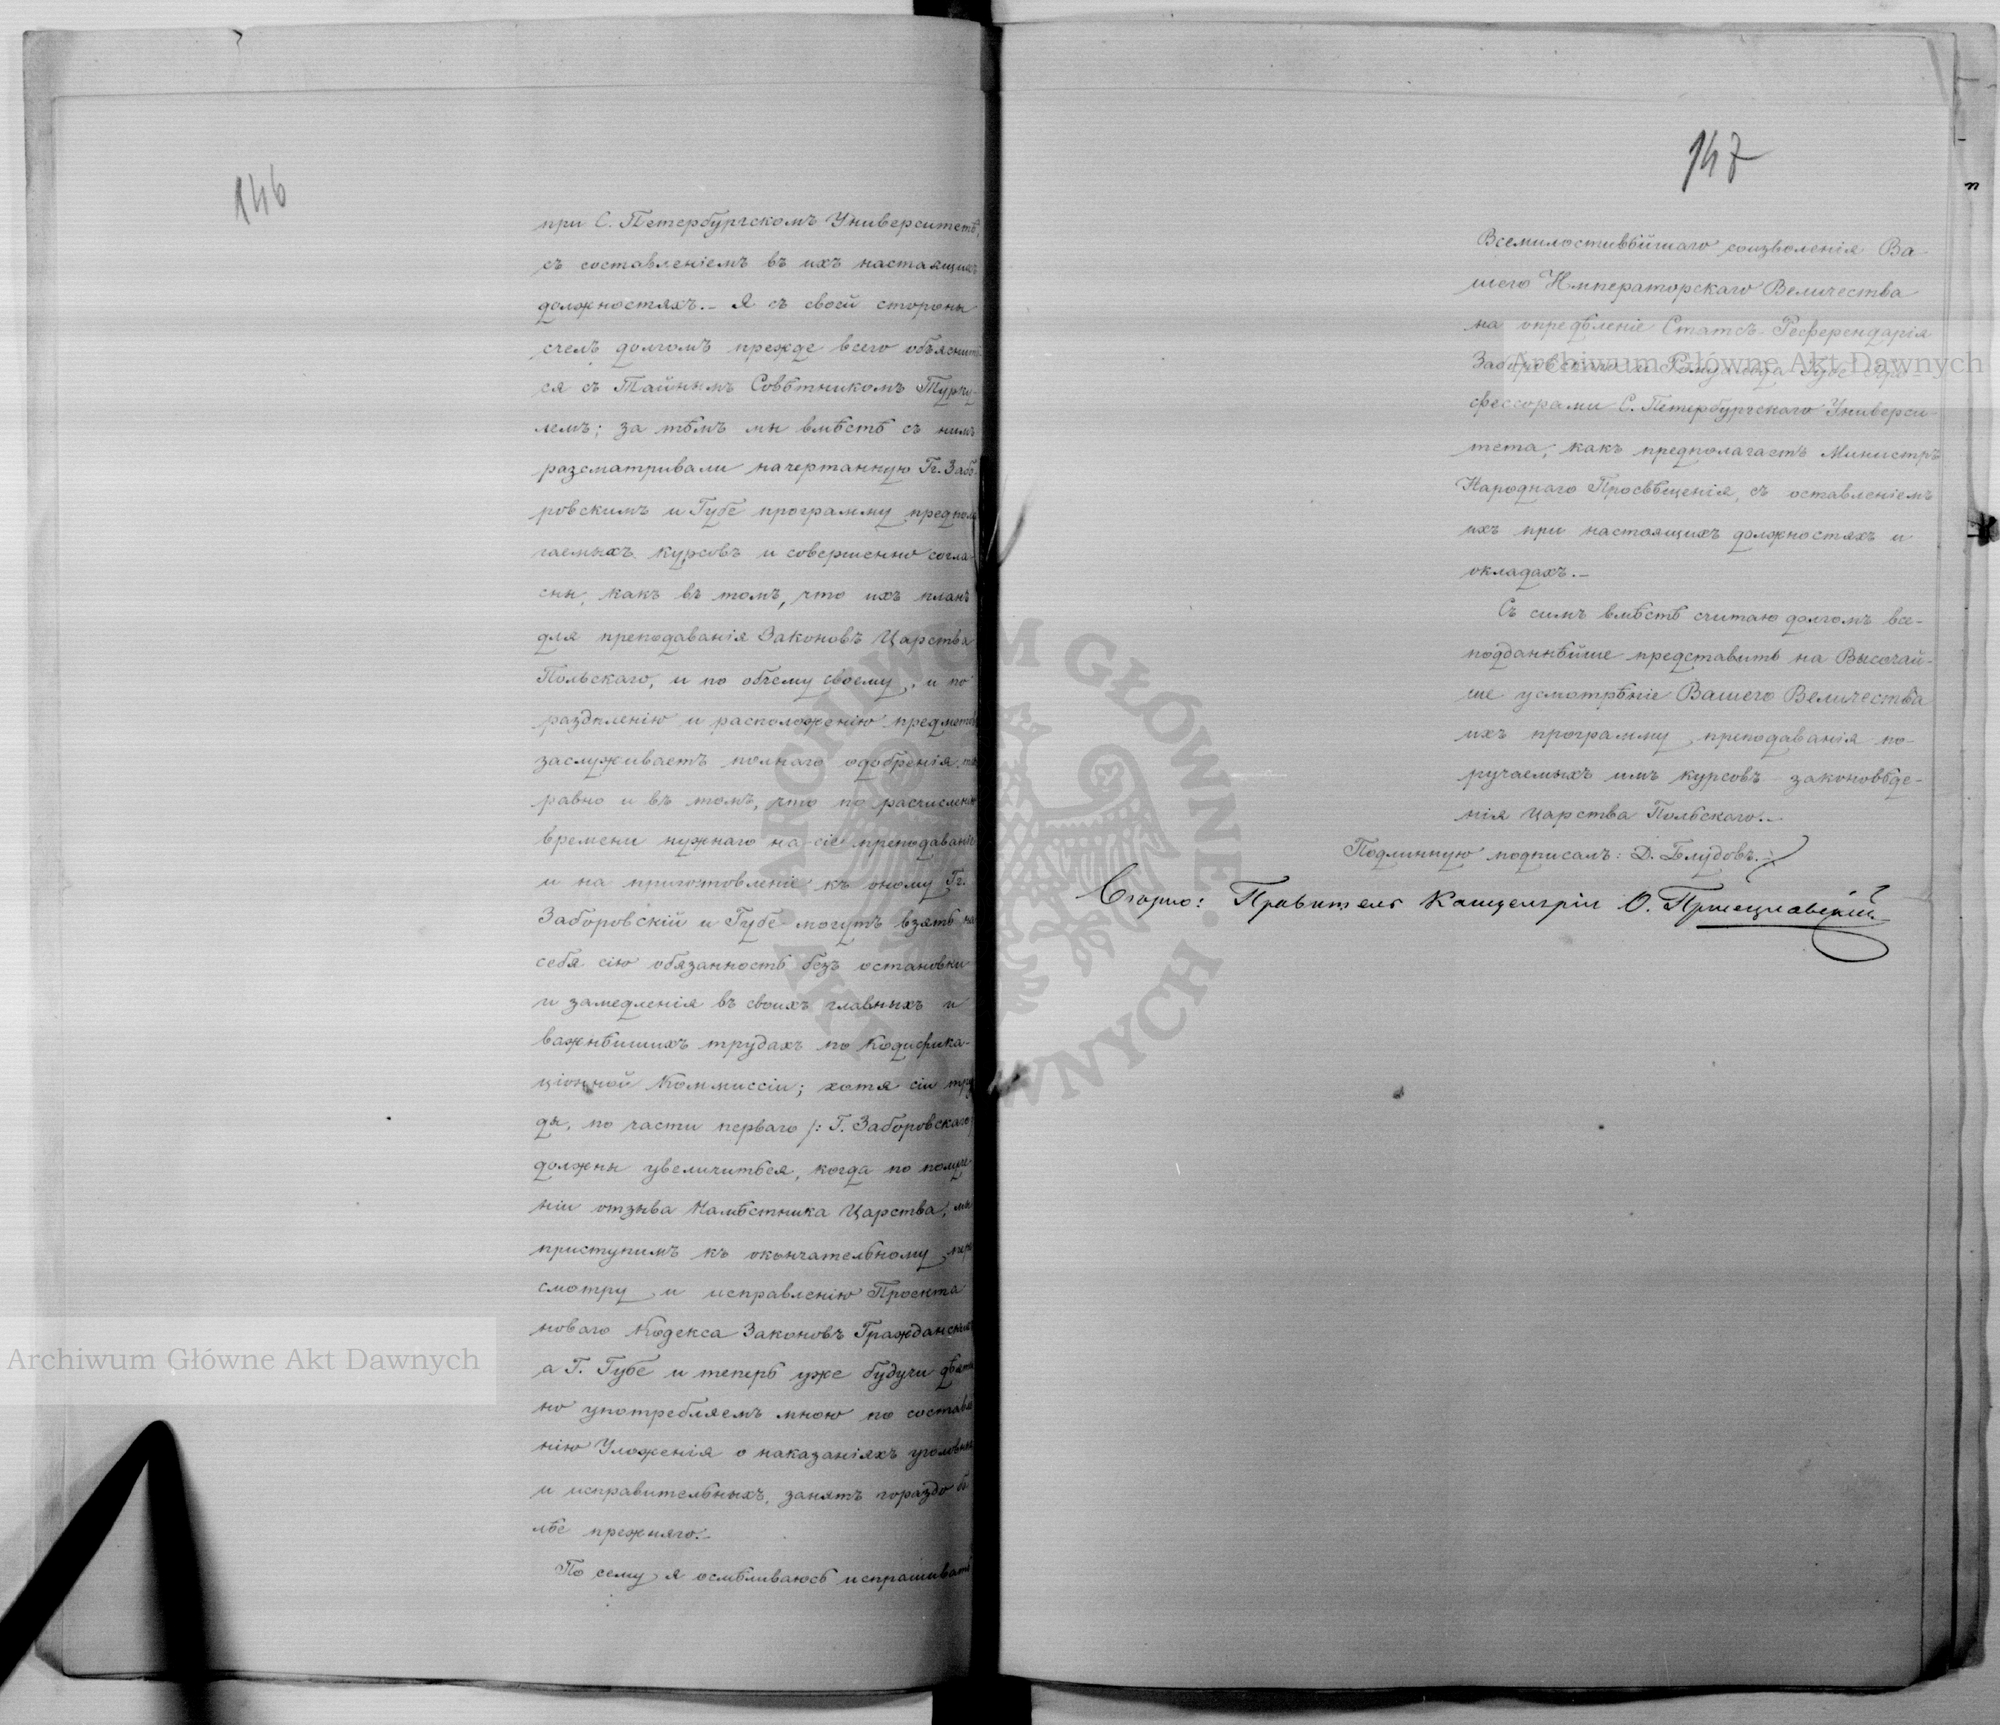 146
при С. Петербургскомъ Университетѣ,
съ составленіемъ въ ихъ настоящихъ
должностяхъ.- Я съ своей стороны
счелъ долгомъ прежде всего объяснить-
ся съ Тайнымъ Совѣтникомъ Турку-
лемъ; за тѣмъ мы вмѣстѣ съ нимъ
разсматривали начертанную Гг. Забо-
ровскимъ и Губе программу предпола-
гаемыхъ курсовъ и совершенно соглас-
сны, какъ въ томъ, что ихъ планъ
для преподаванія Законовъ Царства
Польскаго, и по объему своему, и по
раздѣленію и расположенію предметовъ
заслуживаетъ полнаго одобренія,
равно и въ томъ, что по расчисленію
времени нужнаго на сіе преподаваніе
и на приготовленіе къ оному Гг.
Заборовскій и Губе могутъ взять на
себя сію обязанность безъ остановки
и замедленія въ своихъ главныхъ и
важнѣйшихъ трудахъ по Кодифика-
ціонной Коммиссіи; хотя сіи тру
ды, по части перваго /: Г. Заборовскаго
должны увеличиться, когда по получе
ніи отзыва Намѣстника Царства, мы
приступимъ къ окончательному пере
смотру и исправленію Проекта
новаго Кодекса Законовъ Гражданскихъ
а Г. Губе и теперь уже будучи дѣятель
но употребляемъ мною по составле
нію Уложенія о наказаніяхъ уголовныхъ
и исправительныхъ, занятъ гораздо бо
лѣе прежняго.-
По сему я осмѣливаюсь испрашивать
147
Всемилостивѣйшаго соизволенія Ва-
шего Императорскаго Величества
на опредѣленіе Статсъ-Референдарія
Заборовскаго и Ромуальда Губе Про-
фессорами С. Петербургскаго Универси-
тета, какъ предполагаетъ Министръ
Народнаго Просвѣщенія, съ оставленіемъ
ихъ при настоящихъ должностяхъ и
окладахъ.-
Съ симъ вмѣстѣ считаю долгомъ все-
подданнѣйше представить на Высочай-
ше усмотрѣніе Вашего Величества
ихъ программу преподаванія по-
ручаемыхъ имъ курсовъ законовѣде-
нія Царства Польскаго.-
Подлинную подписалъ: Д. Блудовъ.
Вѣрно: Правитель Канцеляріи О. Пржецлавскій
Archiwum Główne Akt Dawnych
Archiwum Główne Akt Dawnych
ARCHIWUM GŁÓWNE AKT DAWNYCH